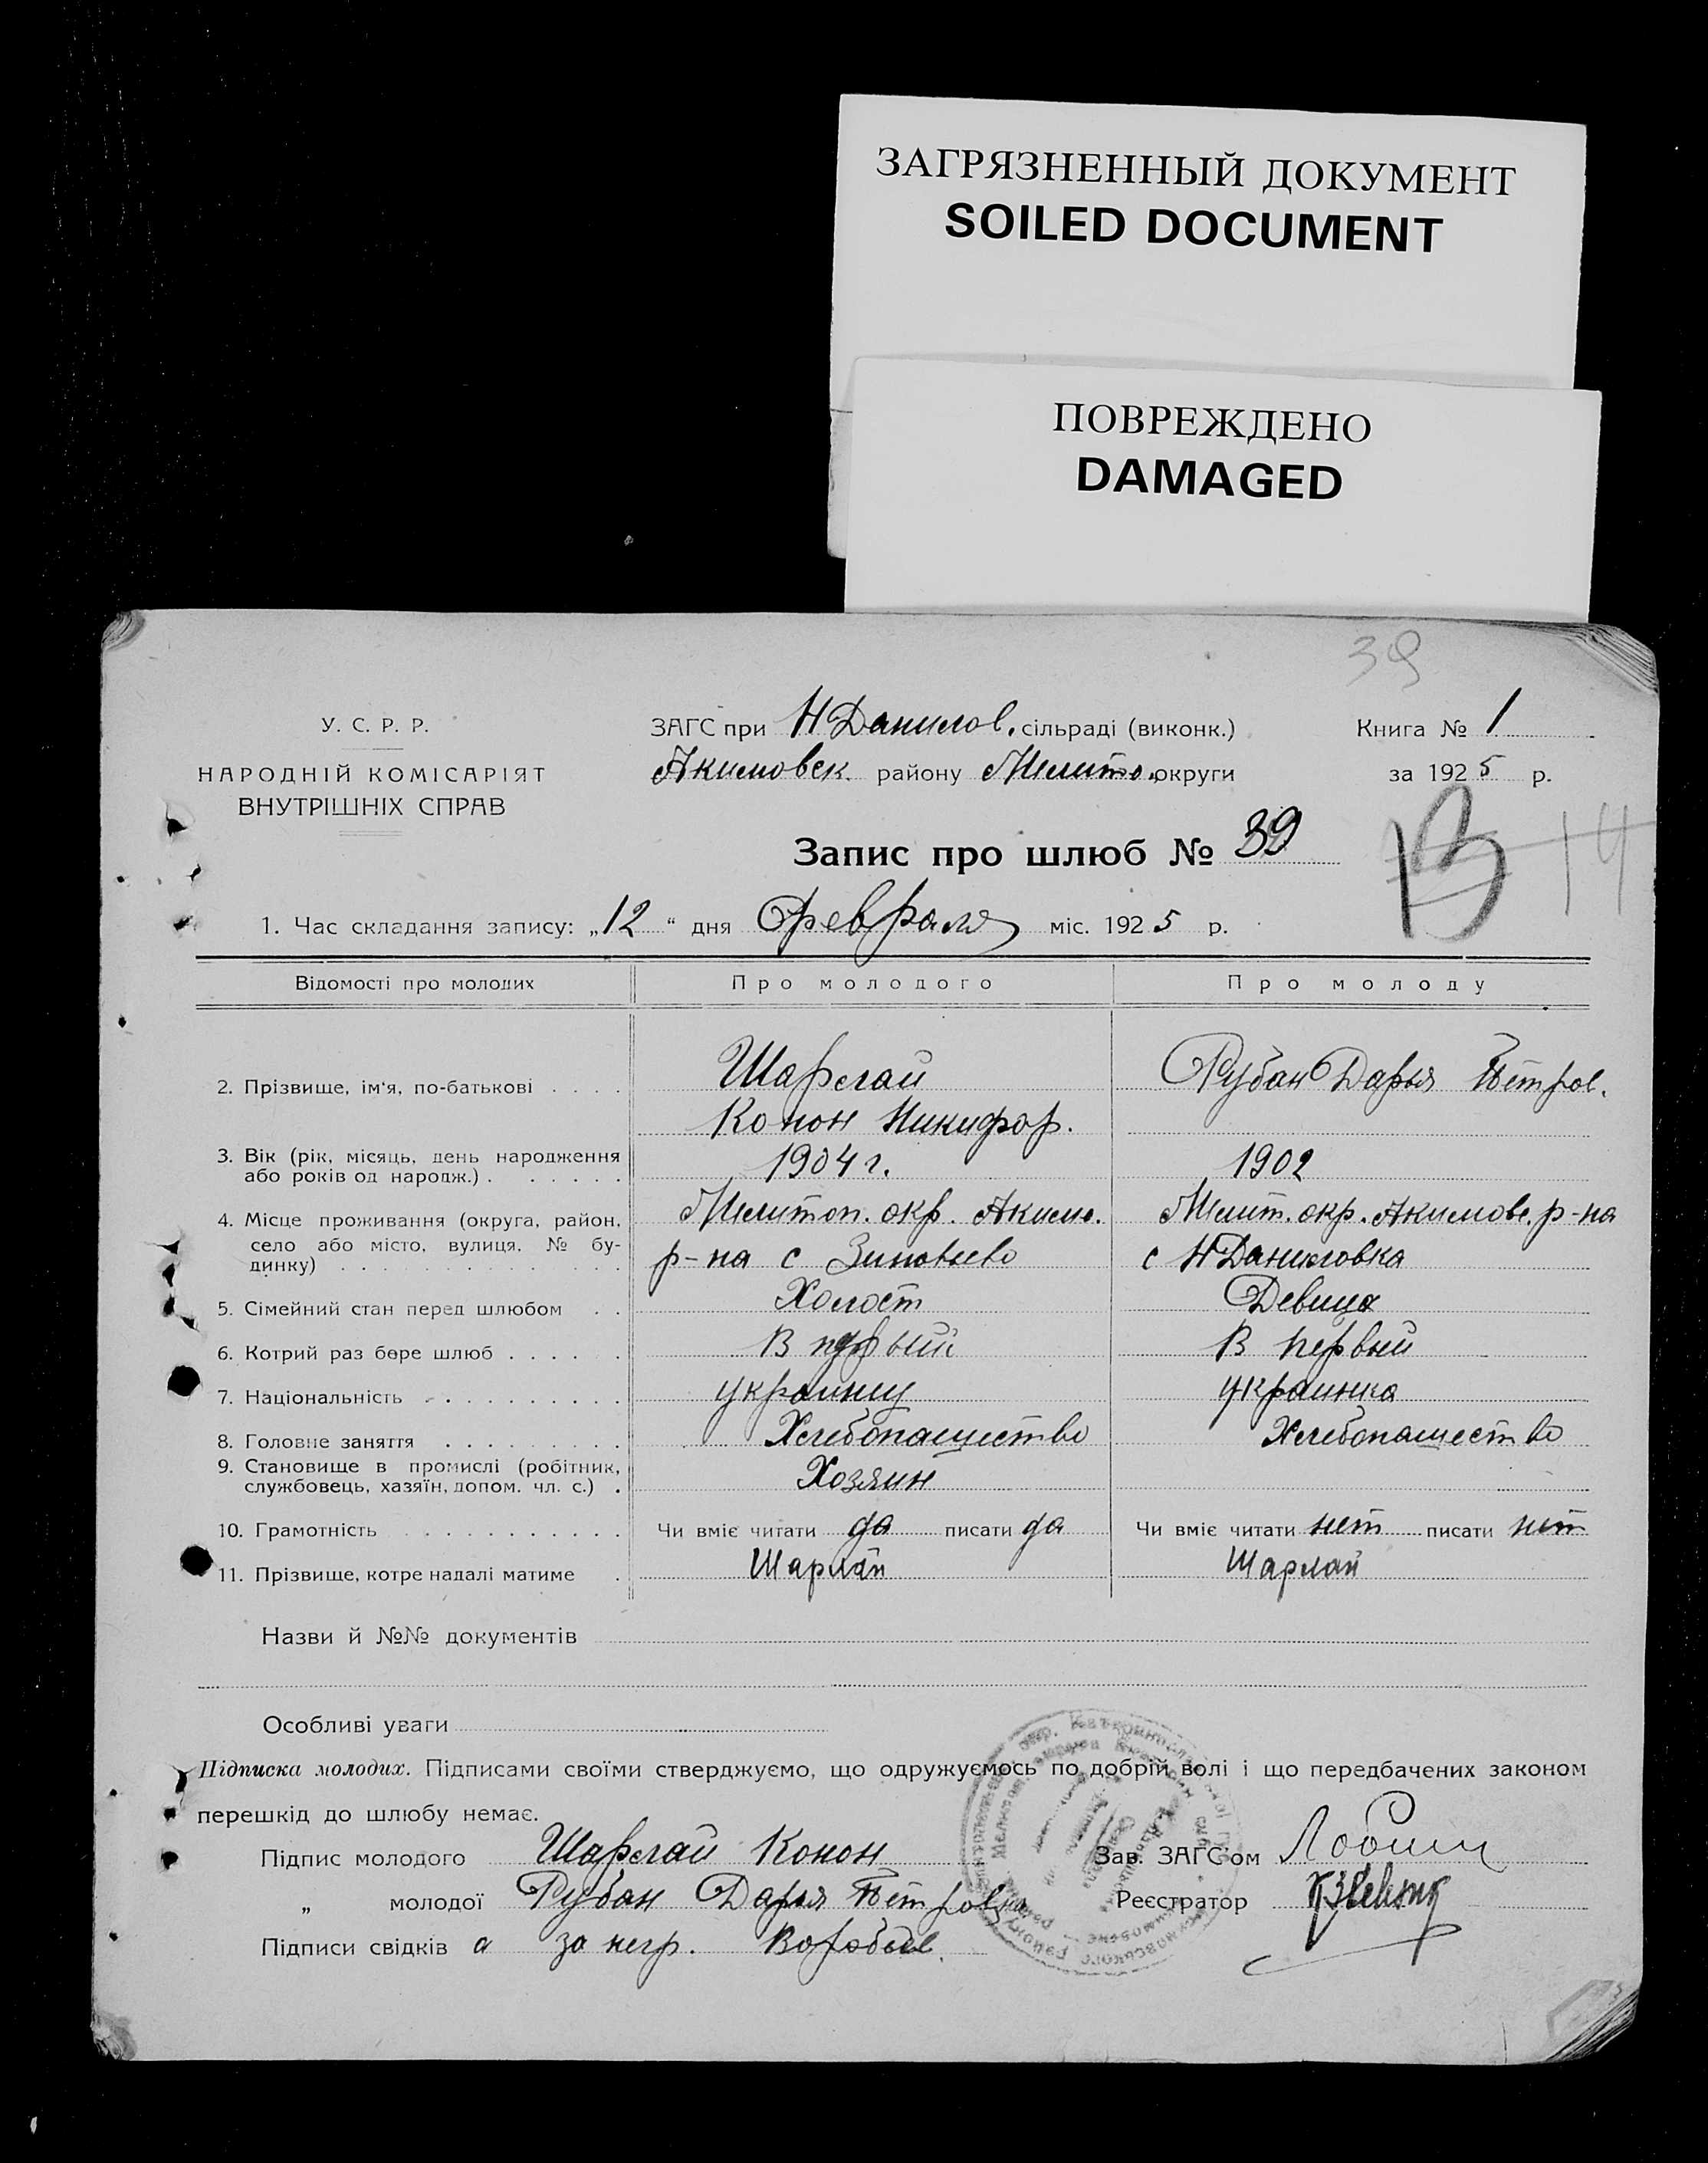 ЗАГРЯЗНЕННЫЙ ДОКУМЕНТ
SOILED DOCUMENT
ПОВРЕЖДЕНО
DAMAGED
39
У. С. Р. Р.
НАРОДНІЙ КОМІСАРІЯТ
ВНУТРІШНІХ СПРАВ
ЗАГС при Н Данилов. сільраді (виконк.)
Акимовск. району Мелито. округи
Книга № 1
за 1925 р.
Запис про шлюб № 39
13 14
1. Час складання запису: „12“ дня Февраля міс. 1925 р.
Відомості про молодих Про молодого Про молоду
2. Прізвище, ім'я, по-батькові . . . . Шарлай Рубан Дарья Петров.
Конон Никифор.
3. Вік (рік, місяць, день народження
або років од народж.) . . . . . . 1904 г. 1902
4. Місце проживання (округа, район, Мелитоп. окр. Акимо. Мелит. окр. Акимовс. р-на
село або місто, вулиця, № бу- р-на с Зиновьево с Н Даниловка
динку)
5. Сімейний стан перед шлюбом . . Холост Девица
6. Котрий раз бере шлюб . . . . . В первый В первый
7. Національність . . . . . . . . . . украинец украинка
8. Головне заняття . . . . . . . . . Хлебопашество Хлебопашество
9. Становище в промислі (робітник,
службовець, хазяїн, допом. чл. с.) . Хозяин
10. Грамотність . . . . . . . . . . . . Чи вміє читати да писати да Чи вміє читати нет писати нет
11. Прізвище, котре надалі матиме . Шарлай Шарлай
Назви й №№ документів
Особливі уваги
Підписка молодих. Підписами своїми стверджуємо, що одружуємось по добрій волі і що передбачених законом
перешкід до шлюбу немає.
Підпис молодого Шарлай Конон Зав. ЗАГС'ом
„ молодої Рубан Дарья Петровна Реєстратор
Підписи свідків а за негр. Воробьев